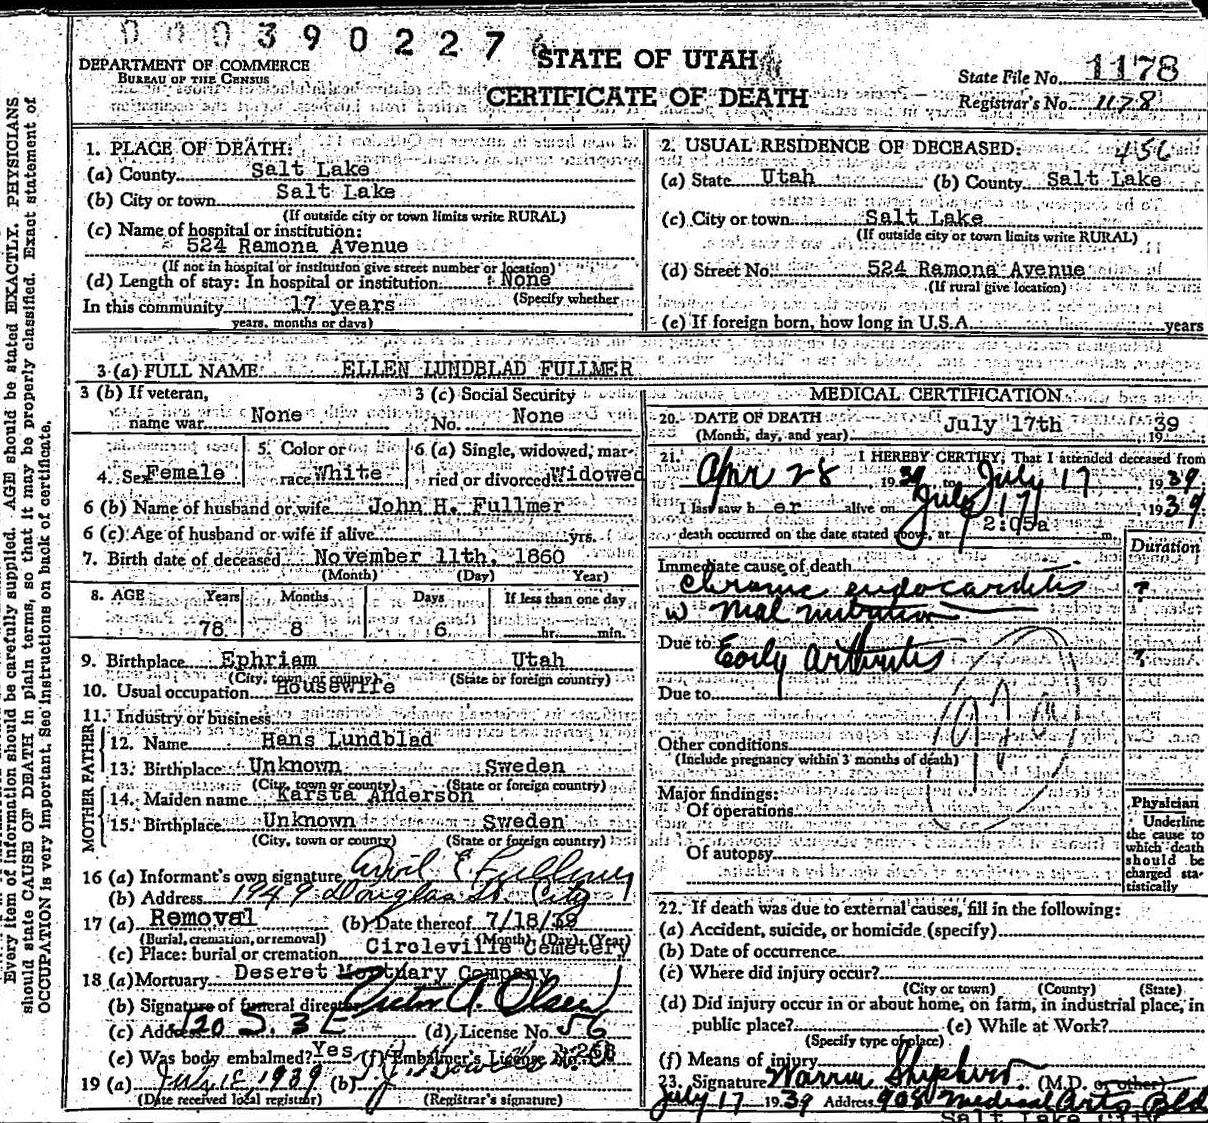 000390227
STATE OF UTAH
DEPARTMENT OF COMMERCE
BUREAU OF THE CENSUS
CERTIFICATE OF DEATH
State File No. 1178
Registrar's No. 1178
Every item of information should be carefully supplied. AGE should be stated EXACTLY. PHYSICIANS
should state CAUSE OF DEATH in plain terms, so that it may be properly classified. Exact statement of
OCCUPATION is very important. See instructions on back of certificate.
1. PLACE OF DEATH:
(a) County Salt Lake
(b) City or town Salt Lake
(If outside city or town limits write RURAL)
(c) Name of hospital or institution:
524 Ramona Avenue
(If not in hospital or institution give street number or location)
(d) Length of stay: In hospital or institution None
(Specify whether
In this community 17 years
years, months or days)
2. USUAL RESIDENCE OF DECEASED: 456
(a) State Utah (b) County Salt Lake
(c) City or town Salt Lake
(If outside city or town limits write RURAL)
(d) Street No. 524 Ramona Avenue
(If rural give location)
(e) If foreign born, how long in U.S.A. years
3 (a) FULL NAME ELLEN LUNDBLAD FULLMER
3 (b) If veteran,
name war None
3 (c) Social Security
No. None
4. Sex Female
5. Color or
race White
6 (a) Single, widowed, mar-
ried or divorced Widowed
6 (b) Name of husband or wife John H. Fullmer
6 (c) Age of husband or wife if alive yrs.
7. Birth date of deceased November 11th, 1860
(Month) (Day) Year)
8. AGE Years Months Days If less than one day
78 8 6 hr. min.
9. Birthplace Ephriam Utah
(City, town or county) (State or foreign country)
10. Usual occupation Housewife
11. Industry or business
FATHER
12. Name Hans Lundblad
13. Birthplace Unknown Sweden
(City, town or county) (State or foreign country)
MOTHER
14. Maiden name Karsta Anderson
15. Birthplace Unknown Sweden
(City, town or county) (State or foreign country)
16 (a) Informant's own signature E. Fullmer
(b) Address 1949 Douglas St. City
17 (a) Removal (b) Date thereof 7/18/39
(Burial, cremation, or removal) (Month) (Day) (Year)
(c) Place: burial or cremation Circleville Cemetery
18 (a) Mortuary Deseret Mortuary Company
(b) Signature of funeral director Victor A. Olsen
(c) Address 120 S. 3 E (d) License No. 56
(e) Was body embalmed? Yes (f) Embalmer's License No. 268
19 (a) July 18, 1939 (b)
(Date received local registrar) (Registrar's signature)
MEDICAL CERTIFICATION
20. DATE OF DEATH July 17th 1939
(Month, day, and year)
21. I HEREBY CERTIFY, That I attended deceased from
Apr 28 1939 to July 17 1939
I last saw h er alive on July 17 1939
death occurred on the date stated above, at 2:05a m.
Duration
Immediate cause of death
Chronic endocarditis ?
w Mal nutrition
Due to Early arthritis ?
Due to
92a
Other conditions
(Include pregnancy within 3 months of death)
Major findings:
Of operations
Of autopsy
Physician
Underline
the cause to
which death
should be
charged sta-
tistically
22. If death was due to external causes, fill in the following:
(a) Accident, suicide, or homicide (specify)
(b) Date of occurrence
(c) Where did injury occur?
(City or town) (County) (State)
(d) Did injury occur in or about home, on farm, in industrial place, in
public place? (e) While at Work?
(Specify type of place)
(f) Means of injury
23. Signature Warren Shepherd (M.D. or other)
July 17 1939 Address 908 Medical Arts Bld
Salt Lake City